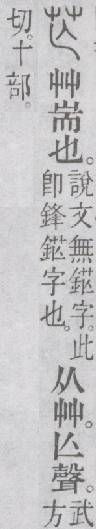 芒 艸耑也。說文無鋩字。此卽鋒鋩字也。从艸。亾聲。武方
切。十部。